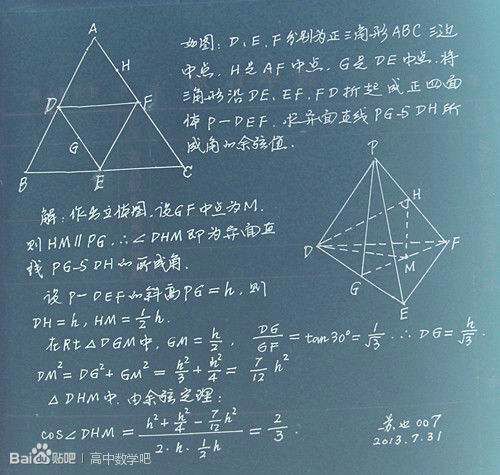 A
H
D
F
G
B
E
C
如图:D、E、F分别为正三角形ABC三边
中点,H是AF中点,G是DE中点,将
三角形沿DE、EF、FD折起成正四面
体P-DEF.求异面直线PG与DH所
成角的余弦值.
P
H
D
F
M
G
E
解:作出立体图,设GF中点为M.
则HM∥PG.∴∠DHM即为异面直
线PG与DH的所成角.
设P-DEF的斜高PG=h,则
DH=h, HM=½h.
在Rt△DGM中, GM=h/2, DG/GF=tan30°=1/√3. ∴DG=h/√3.
DM²=DG²+GM²=h²/3+h²/4=7/12 h²
△DHM中.由余弦定理:
cos∠DHM=(h²+h²/4-7/12 h²)/(2·h·½h)=2/3.
007
2013.7.31
Bai du 贴吧 | 高中数学吧